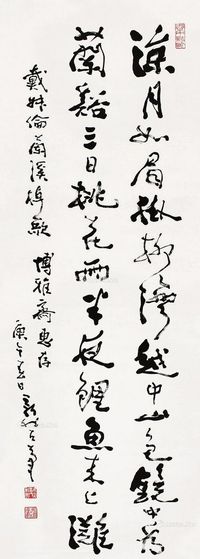 涼月如眉掛柳灣越中山色鏡中看
蘭谿三日桃花雨半夜鯉魚來上灘
戴叔倫蘭溪棹歌 博雅齋惠存
庚午